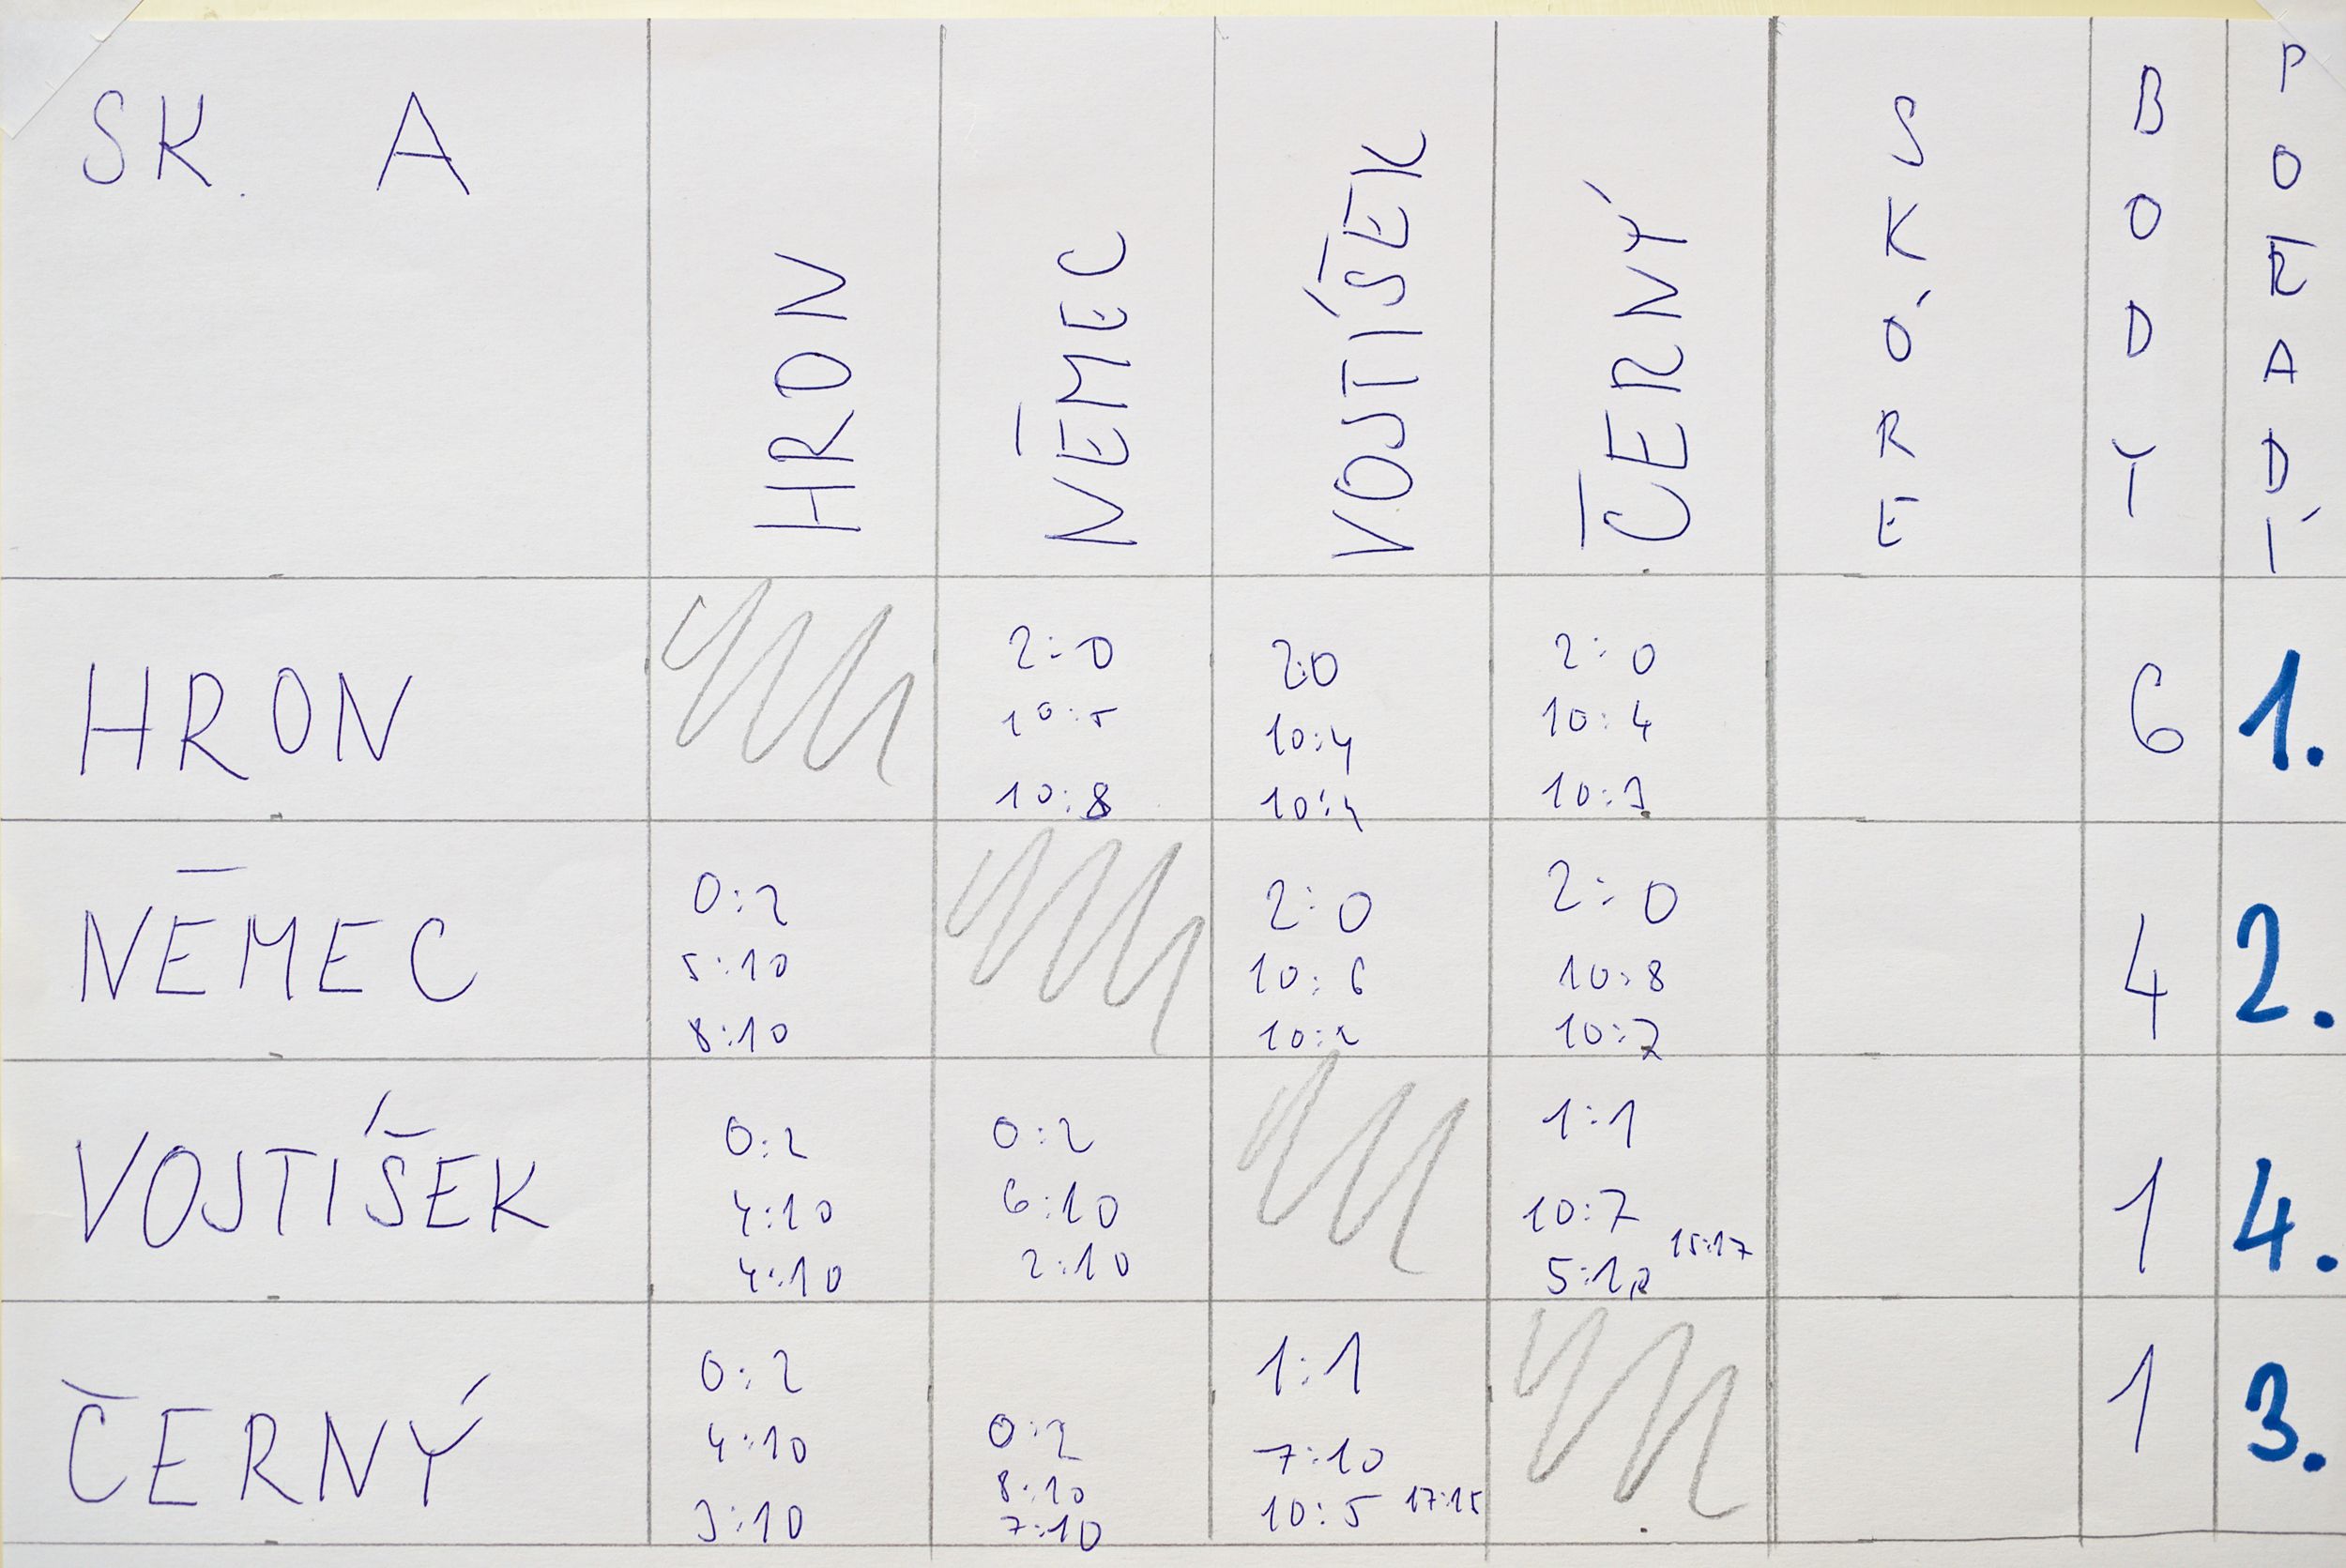 SK. A
HRON
NĚMEC
VOJTÍŠEK
ČERNÝ
SKÓRE
BODY
POŘADÍ
HRON
2:0
10:5
10:8
2:0
10:4
10:4
2:0
10:4
10:3
6
1.
NĚMEC
0:2
5:10
8:10
2:0
10:6
10:2
2:0
10:8
10:7
4
2.
VOJTÍŠEK
0:2
4:10
4:10
0:2
6:10
2:10
1:1
10:7
5:10
15:17
1
4.
ČERNÝ
0:2
4:10
3:10
0:2
8:10
7:10
1:1
7:10
10:5
17:15
1
3.